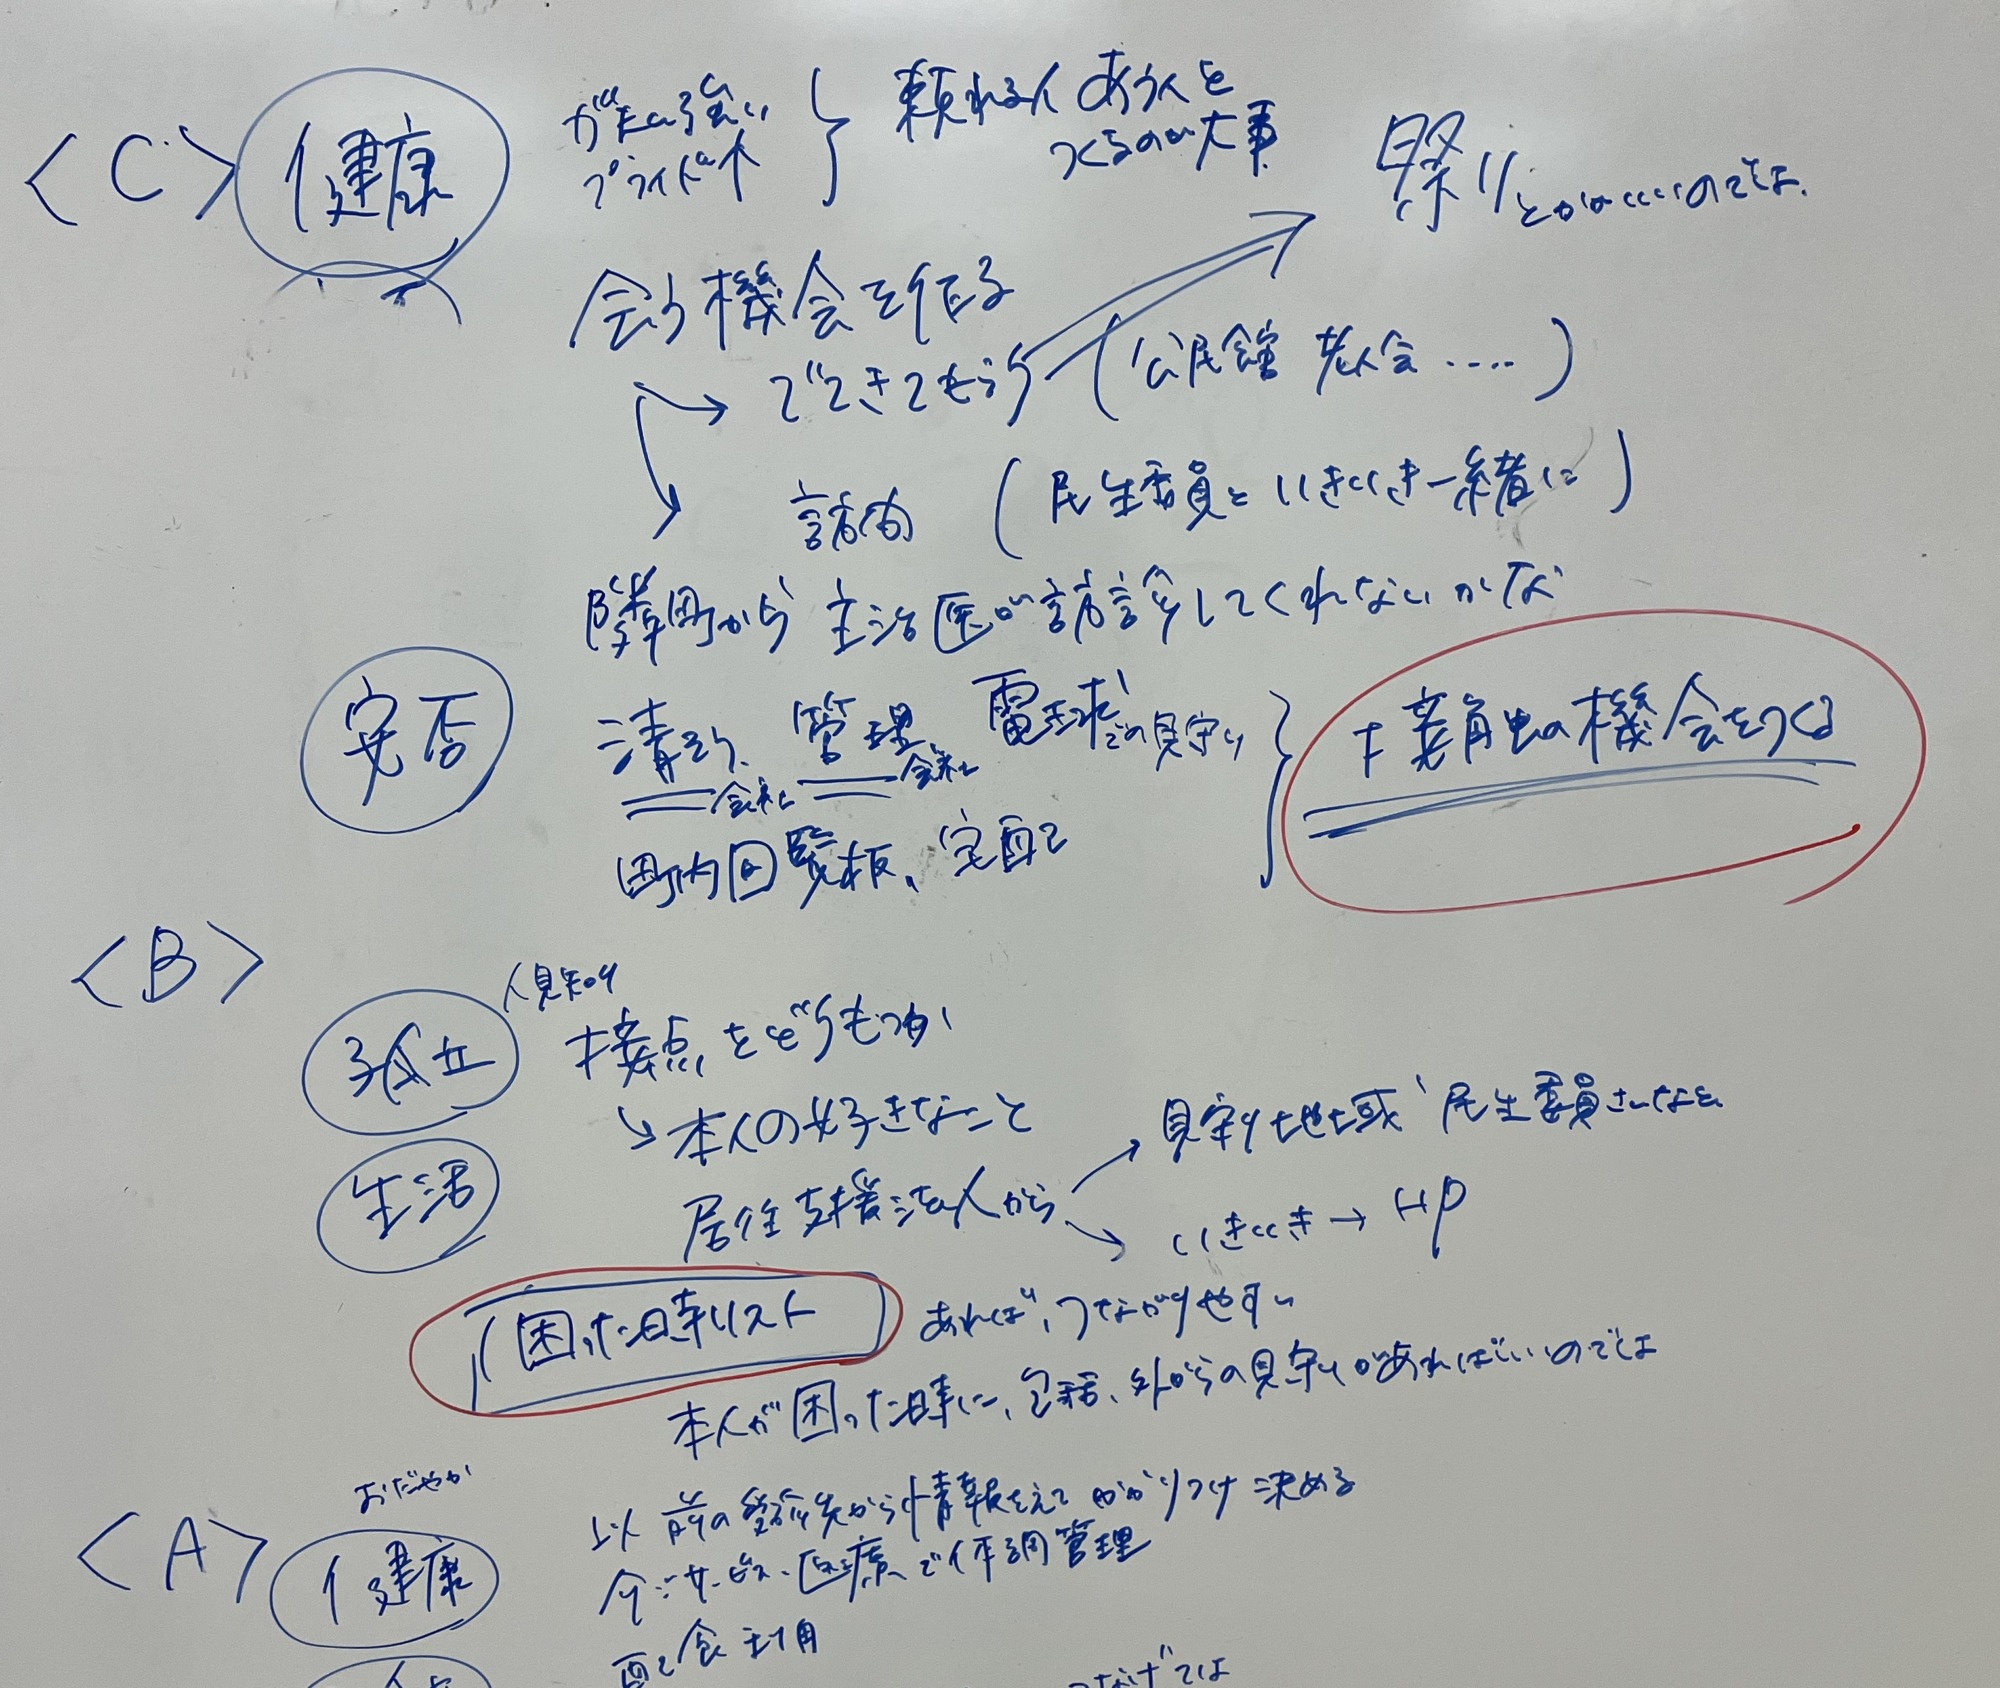 <C> 健康
がたい強い
プライド大
頼れる人 あう人を
つくるのが大事
祭りとかがいいのでは、
会う機会を作る
でてきてもらう (公民館 老人会 ‥‥)
訪問 (民生委員といきいき一緒に)
隣町から 主治医が訪診してくれないかな
安否
清そう会社 管理会社 電球での見守り
町内回覧板、宅配
接触の機会をつくる
<B>
孤立
人見知り
接点をどうもつか
本人の好きなこと
生活
居住支援法人から
見守り地域 民生委員さんなど
いきいき→HP
困った時リスト
あれば、つながりやすい
本人が困った時に、包括、外からの見守りがあればいいのでは
<A>
おだやか
健康
以前の 先から情報をえて かかりつけ決める
介ゴサービス、医療、で体調管理
配食利用
つなげては